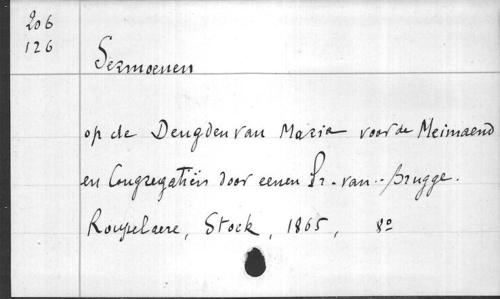 206
126
Sermoenen
op de Deugden van Maria voor de Meimaend
en Congregatiën door eenen Pr. van .. Brugge.
Rousselaere, Stock, 1865, 8º